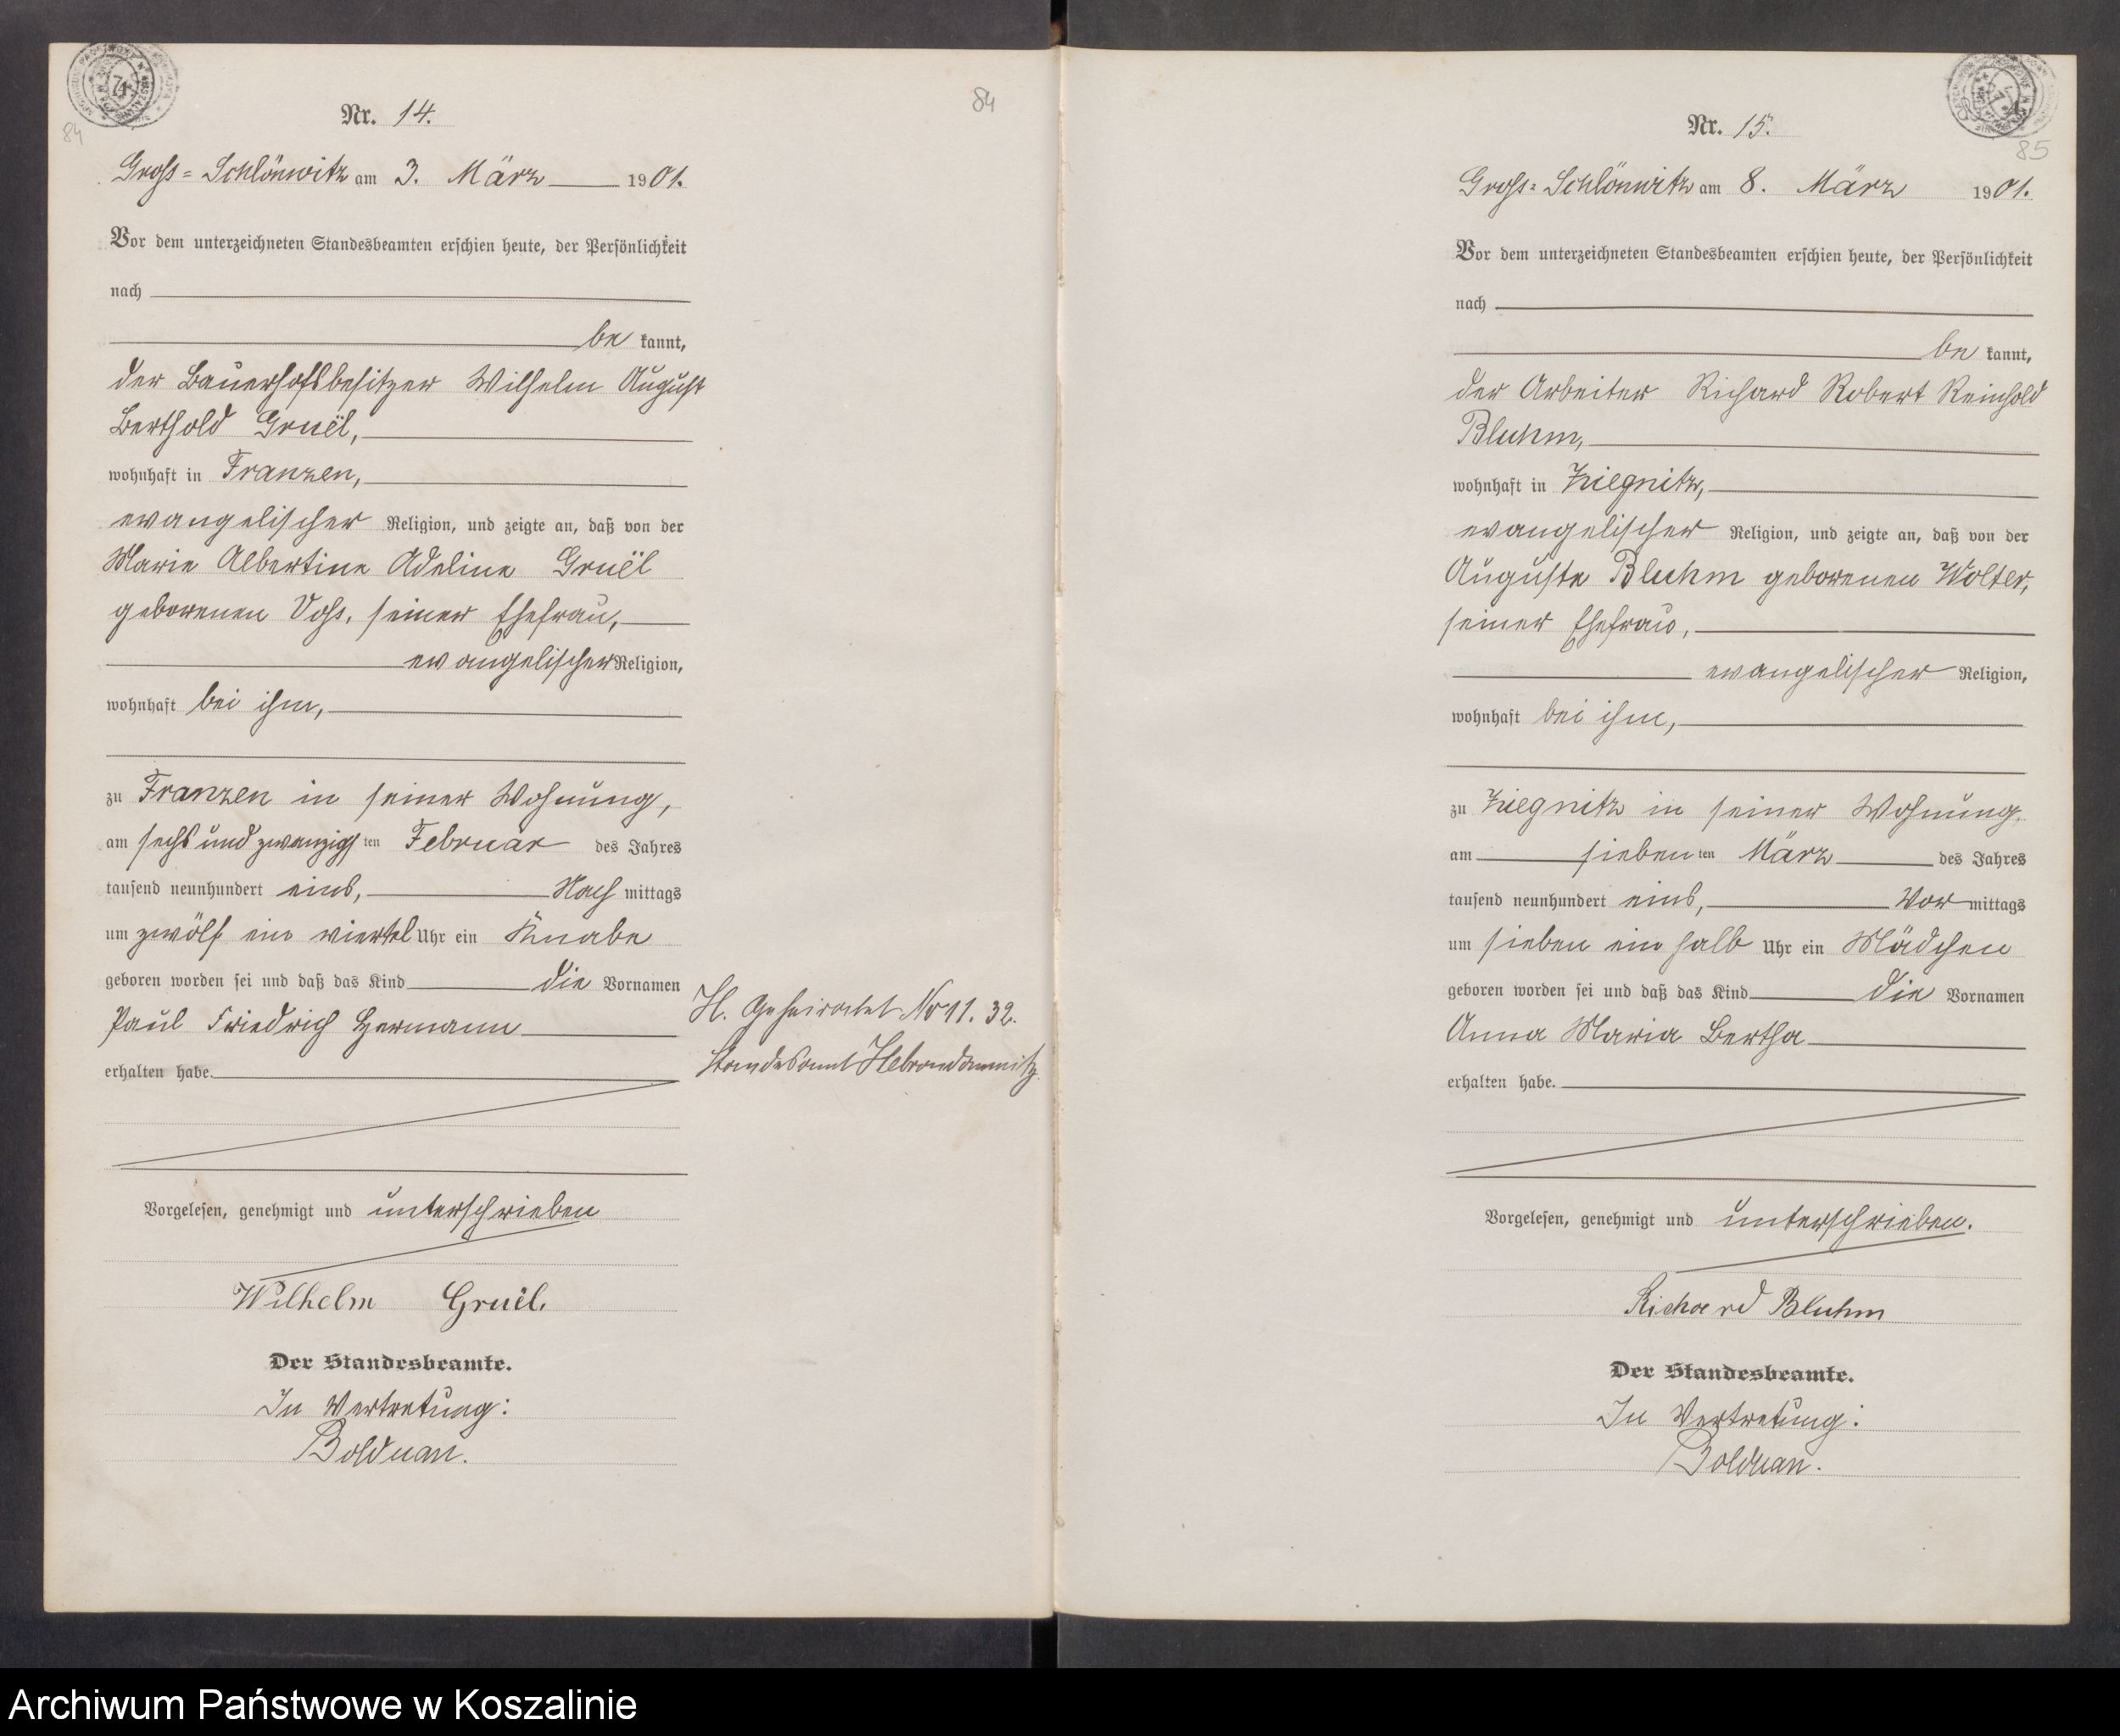 84
Nr. 14.
Gross=Schlönwitz am 3. März 1901.
Vor dem unterzeichneten Standesbeamten erschien heute, der Persönlichkeit
nach
be kannt,
der Bauerhofsbesitzer Wilhelm August
Berthold Gruël,
wohnhaft in Franzen,
evangelischer Religion, und zeigte an, daß von der
Marie Albertine Adeline Gruël
geborenen Voss, seiner Ehefrau,
evangelischer Religion,
wohnhaft bei ihm,
zu Franzen in seiner Wohnung,
am sechs und zwanzigsten Februar des Jahres
tausend neunhundert eins, Nach mittags
um zwölf ein viertel Uhr ein Knabe
geboren worden sei und daß das Kind die Vornamen
Paul Friedrich Hermann
erhalten habe.
H. Geheiratet Nr 11. 32.
Standesamt Hebrondamnitz.
Vorgelesen, genehmigt und unterschrieben
Wilhelm Gruël.
Der Standesbeamte.
In Vertretung:
Bolduan.
84
85
Nr. 15.
Gross=Schlönwitz am 8. März 1901.
Vor dem unterzeichneten Standesbeamten erschien heute, der Persönlichkeit
nach
be kannt,
der Arbeiter Richard Robert Reinhold
Bluhm,
wohnhaft in Kriegnitz,
evangelischer Religion, und zeigte an, daß von der
Auguste Bluhm geborenen Wolter,
seiner Ehefrau,
evangelischer Religion,
wohnhaft bei ihm,
zu in seiner Wohnung
am sieben ten März des Jahres
tausend neunhundert eins, Vor mittags
um sieben ein halb Uhr ein Mädchen
geboren worden sei und daß das Kind die Vornamen
Anna Maria Bertha
erhalten habe.
Vorgelesen, genehmigt und unterschrieben.
Richard Bluhm
Der Standesbeamte.
In Vertretung:
Bolduan.
Archiwum Państwowe w Koszalinie